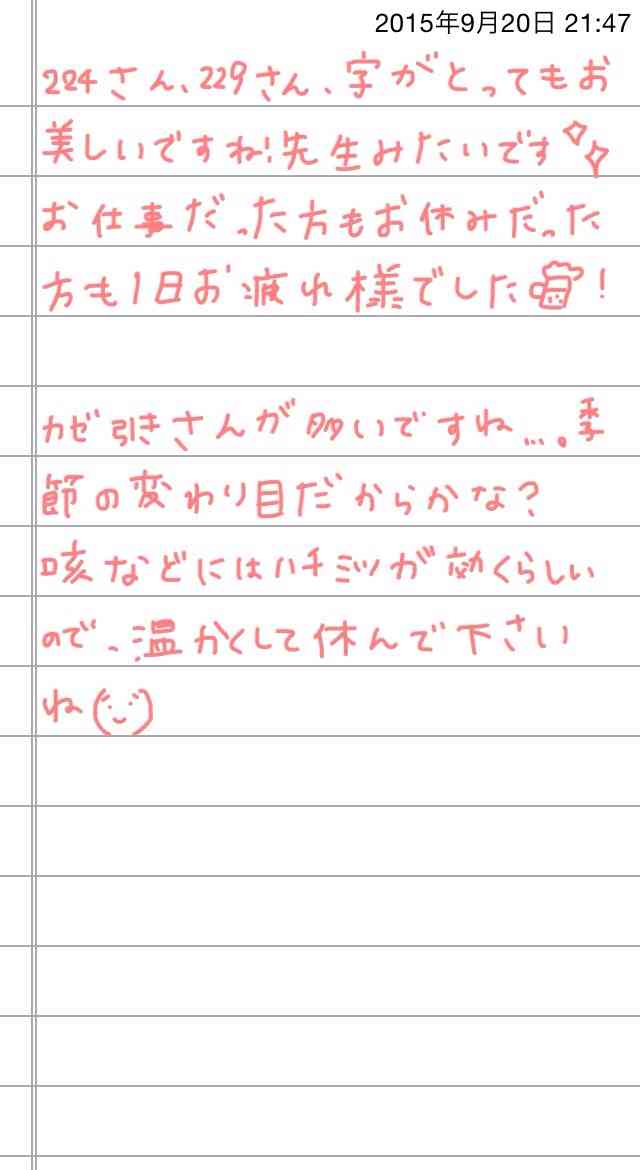 2015年9月20日 21:47
224さん、229さん、字がとってもお
美しいですね!先生みたいです
お仕事だった方もお休みだった
方も1日お疲れ様でした!
カゼ引きさんが多いですね...。季
節の変わり目だからかな?
咳などにはハチミツが効くらしい
ので、温かくして休んで下さい
ね